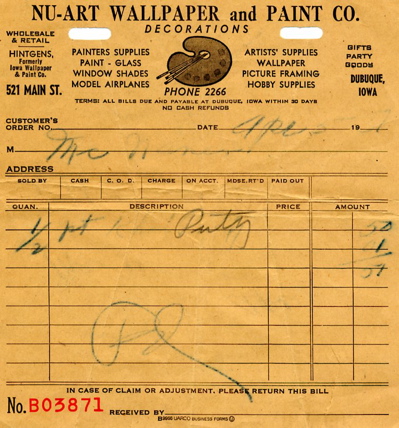 NU-ART WALLPAPER and PAINT CO.
DECORATIONS
WHOLESALE
& RETAIL
HINTGENS,
Formerly
Iowa Wallpaper
& Paint Co.
521 MAIN ST.
PAINTERS SUPPLIES
PAINT - GLASS
WINDOW SHADES
MODEL AIRPLANES
PHONE 2266
ARTISTS' SUPPLIES
WALLPAPER
PICTURE FRAMING
HOBBY SUPPLIES
GIFTS
PARTY
GOODS
DUBUQUE,
IOWA
TERMS: ALL BILLS DUE AND PAYABLE AT DUBUQUE, IOWA WITHIN 30 DAYS
NO CASH REFUNDS
CUSTOMER'S
ORDER NO. DATE 19
M
ADDRESS
SOLD BY CASH C. O. D. CHARGE ON ACCT. MDSE. RT'D PAID OUT
QUAN. DESCRIPTION PRICE AMOUNT
1/2 pt Putty
Pd
IN CASE OF CLAIM OR ADJUSTMENT, PLEASE RETURN THIS BILL
No. B03871 RECEIVED BY
UARCO BUSINESS FORMS